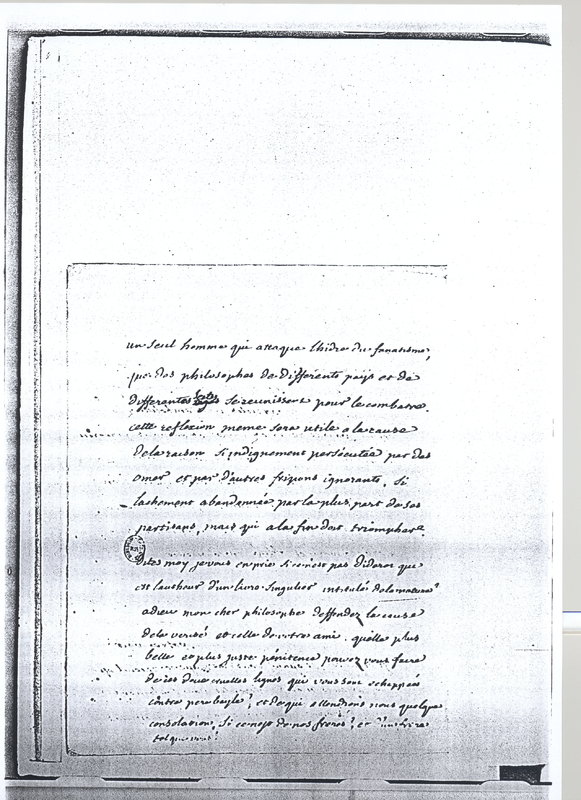 un seul homme qui attaque l'hidre du fanatisme,
que des philosophes de differents pays et de
differentes sectes se reunissent pour le combatre.
cette reflexion meme sera utile a la cause
de la raison si indignement persécutée par des
omer et par d'autres fripons ignorants, si
lachement abandonnée par la plus part de ses
partisans, mais qui a la fin doit triomphere
dites moy je vous en prie si ce n'est pas Diderot qui
est lautheur d'un livre singulier intitulé de la nature?
adieu mon cher philosophe deffendez la cause
de la verité et celle de votre ami. quelle plus
belle et plus juste pénitence pouvez vous faire
de ces deux cruelles lignes qui vous sont echappées
contre pere bayle? et de qui attendrons nous quelque
consolation, si ce n'est de nos freres? et d'un frere
tel que vous!